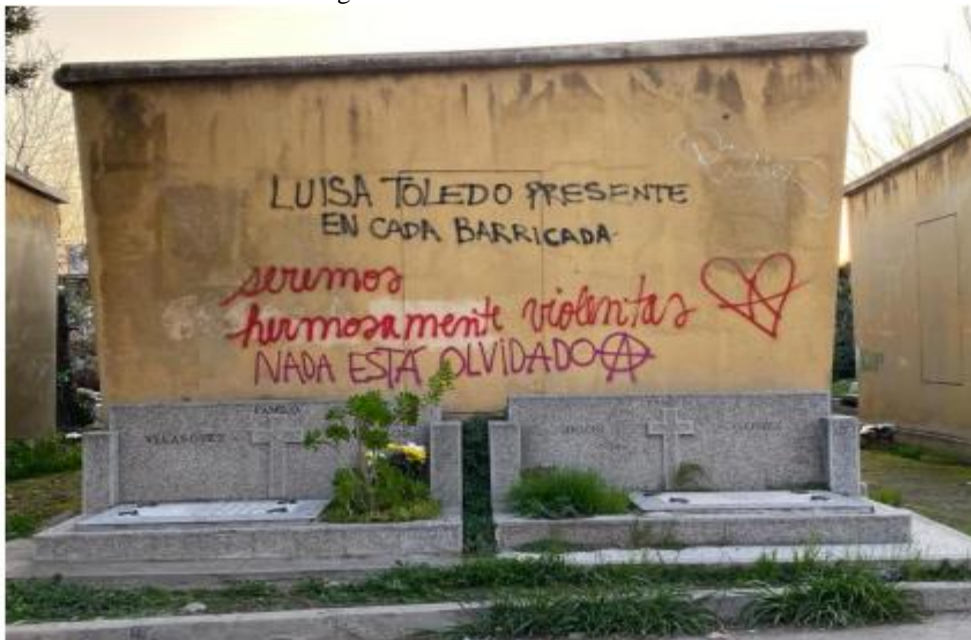 LUISA TOLEDO PRESENTE
EN CADA BARRICADA
seremos
hermosamente violentas
NADA ESTÁ OLVIDADO
FAMILIA
VELASQUEZ
GOMEZ